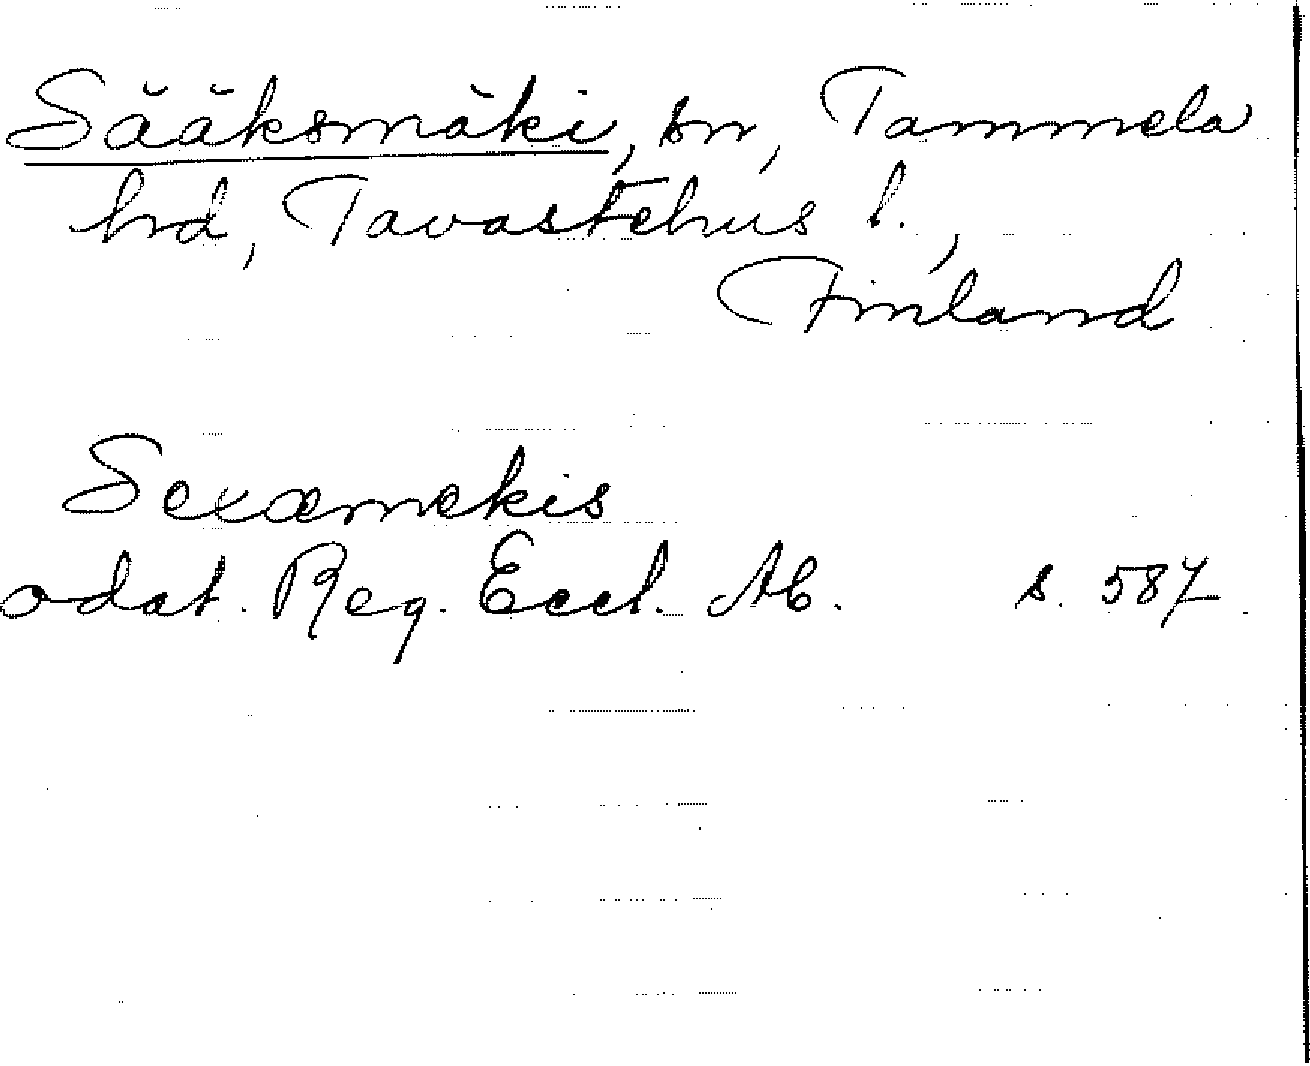 Sääksmäki, sn, Tammela
hd, Tavastehus l.,
Finland
Sexæmekis
odat. Reg. Eccl. Ab. s. 587